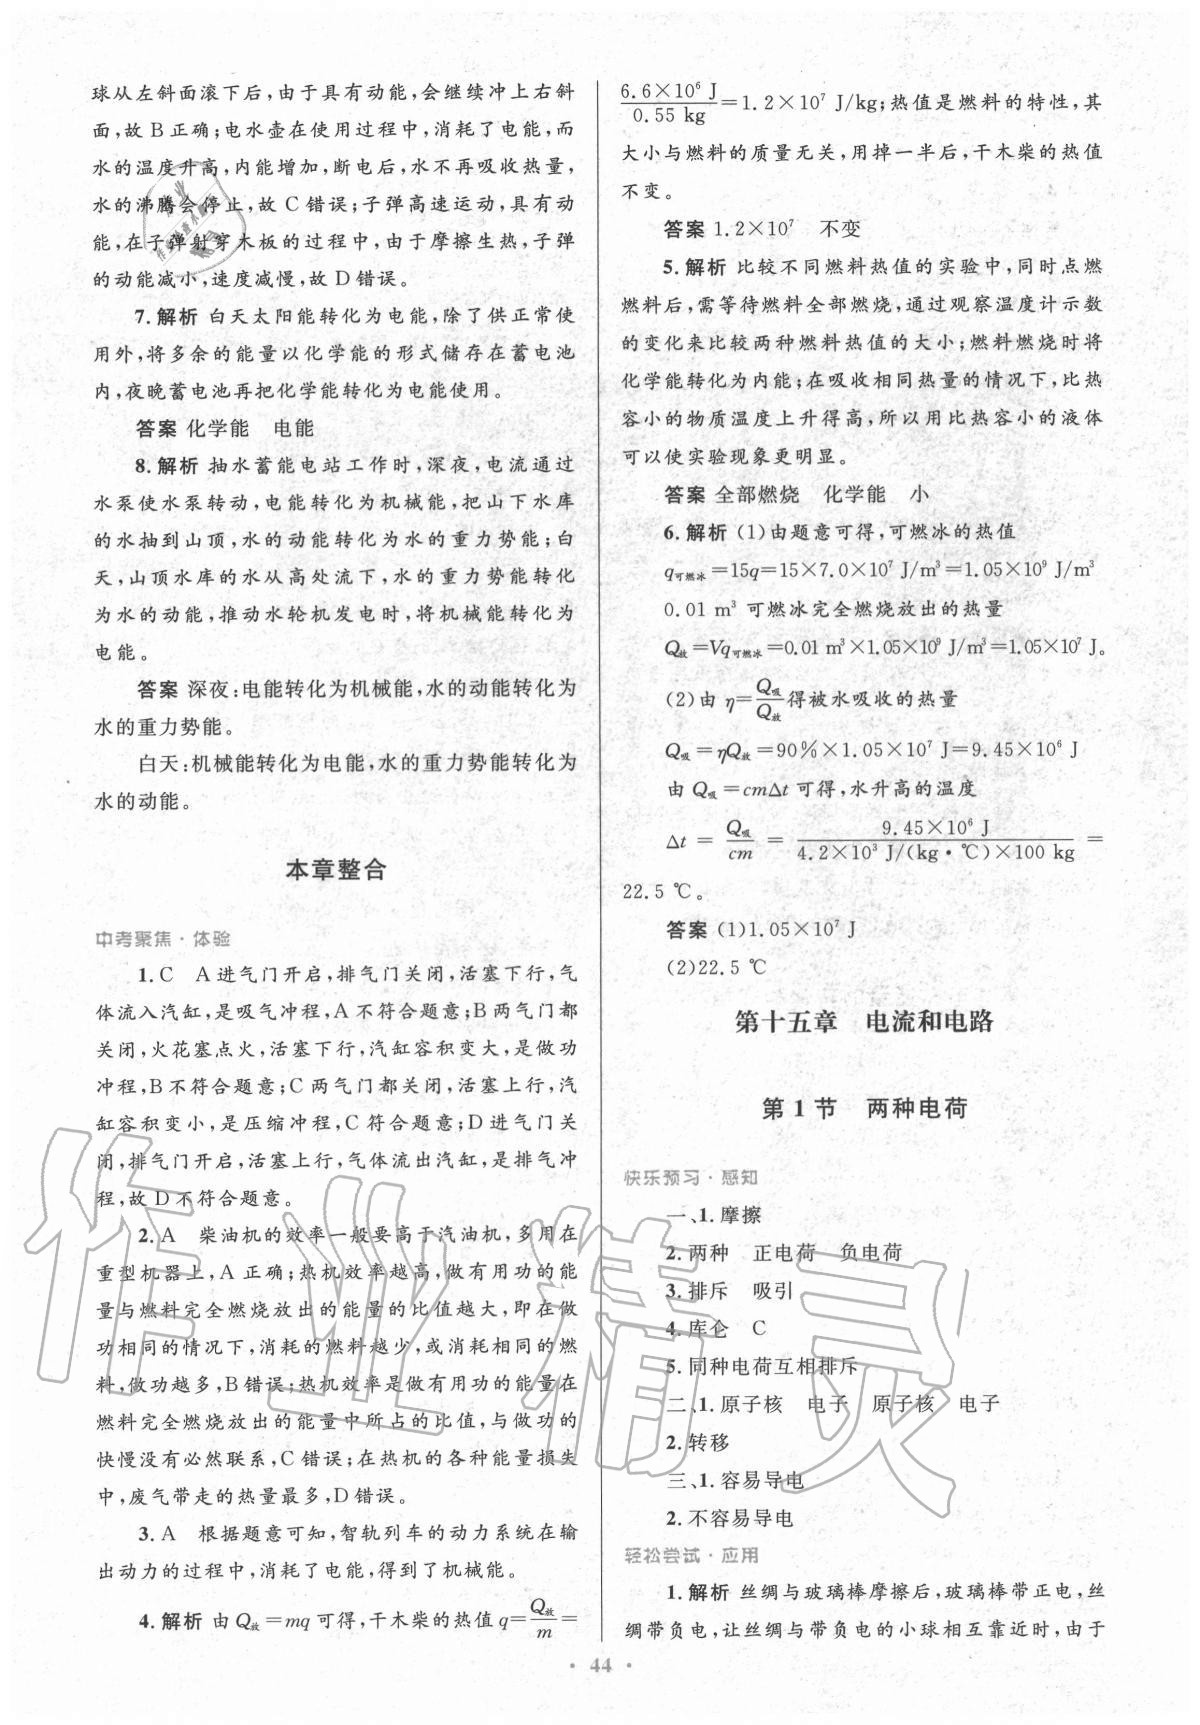 球从左斜面滚下后,由于具有动能,会继续冲上右斜
面,故 B 正确;电水壶在使用过程中,消耗了电能,而
水的温度升高,内能增加,断电后,水不再吸收热量,
水的沸腾会停止,故 C 错误;子弹高速运动,具有动
能,在子弹射穿木板的过程中,由于摩擦生热,子弹
的动能减小,速度减慢,故 D 错误。
7.解析 白天太阳能转化为电能,除了供正常使
用外,将多余的能量以化学能的形式储存在蓄电池
内,夜晚蓄电池再把化学能转化为电能使用。
答案 化学能 电能
8.解析 抽水蓄能电站工作时,深夜,电流通过
水泵使水泵转动,电能转化为机械能,把山下水库
的水抽到山顶,水的动能转化为水的重力势能;白
天,山顶水库的水从高处流下,水的重力势能转化
为水的动能,推动水轮机发电时,将机械能转化为
电能。
答案 深夜:电能转化为机械能,水的动能转化为
水的重力势能。
白天:机械能转化为电能,水的重力势能转化为
水的动能。
本章整合
中考聚焦·体验
1.C A 进气门开启,排气门关闭,活塞下行,气
体流入汽缸,是吸气冲程,A 不符合题意;B 两气门都
关闭,火花塞点火,活塞下行,汽缸容积变大,是做功
冲程,B 不符合题意;C 两气门都关闭,活塞上行,汽
缸容积变小,是压缩冲程,C 符合题意;D 进气门关
闭,排气门开启,活塞上行,气体流出汽缸,是排气冲
程,故 D 不符合题意。
2.A 柴油机的效率一般要高于汽油机,多用在
重型机器上,A 正确;热机效率越高,做有用功的能
量与燃料完全燃烧放出的能量的比值越大,即在做
功相同的情况下,消耗的燃料越少,或消耗相同的燃
料,做功越多,B 错误;热机效率是做有用功的能量在
燃料完全燃烧放出的能量中所占的比值,与做功的
快慢没有必然联系,C 错误;在热机的各种能量损失
中,废气带走的热量最多,D 错误。
3.A 根据题意可知,智轨列车的动力系统在输
出动力的过程中,消耗了电能,得到了机械能。
4.解析 由 Q放=mq 可得,干木柴的热值 q=Q放/m=
6.6×10⁶ J/0.55 kg=1.2×10⁷ J/kg;热值是燃料的特性,其
大小与燃料的质量无关,用掉一半后,干木柴的热值
不变。
答案 1.2×10⁷ 不变
5.解析 比较不同燃料热值的实验中,同时点燃
燃料后,需等待燃料全部燃烧,通过观察温度计示数
的变化来比较两种燃料热值的大小;燃料燃烧时将
化学能转化为内能;在吸收相同热量的情况下,比热
容小的物质温度上升得高,所以用比热容小的液体
可以使实验现象更明显。
答案 全部燃烧 化学能 小
6.解析 (1)由题意可得,可燃冰的热值
q可燃冰=15q=15×7.0×10⁷ J/m³=1.05×10⁹ J/m³
0.01 m³ 可燃冰完全燃烧放出的热量
Q放=Vq可燃冰=0.01 m³×1.05×10⁹ J/m³=1.05×10⁷ J。
(2)由 η=Q吸/Q放得被水吸收的热量
Q吸=ηQ放=90%×1.05×10⁷ J=9.45×10⁶ J
由 Q吸=cmΔt 可得,水升高的温度
Δt = Q吸/cm = 9.45×10⁶ J/4.2×10³ J/(kg·℃)×100 kg =
22.5 ℃。
答案 (1)1.05×10⁷ J
(2)22.5 ℃
第十五章 电流和电路
第 1 节 两种电荷
快乐预习·感知
一、1.摩擦
2.两种 正电荷 负电荷
3.排斥 吸引
4.库仑 C
5.同种电荷互相排斥
二、1.原子核 电子 原子核 电子
2.转移
三、1.容易导电
2.不容易导电
轻松尝试·应用
1.解析 丝绸与玻璃棒摩擦后,玻璃棒带正电,丝
绸带负电,让丝绸与带负电的小球相互靠近时,由于
· 44 ·
作业精灵